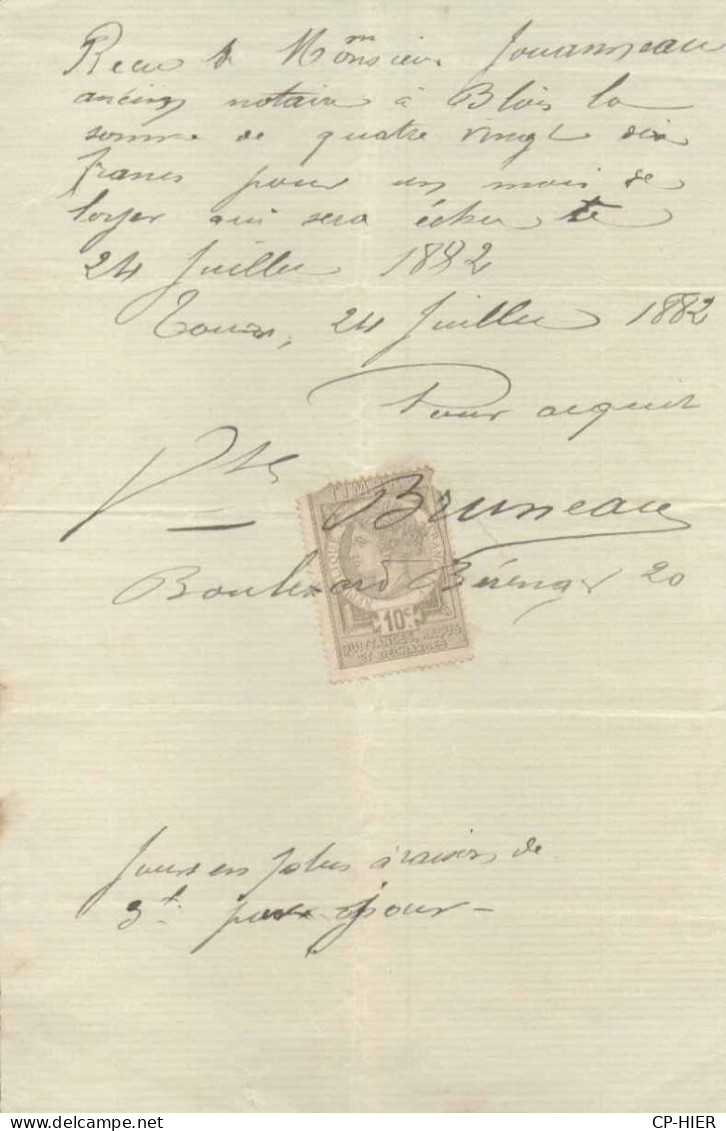 Recu de Monsieur Jouanneau
ancien notaire à Blois la
somme de quatre vingt dix
francs pour un mois de
loyer qui sera échu le
24 Juillet 1882
Tours, 24 Juillet 1882
Pour acquit
Vve Bruneau
Boulevard Béranger 20
TIMBRE
RÉPUBLIQUE FRANÇAISE
10c
QUITTANCES, REÇUS
ET DÉCHARGES
Jours en plus à raison de
3f. par jour -
CP-HIER